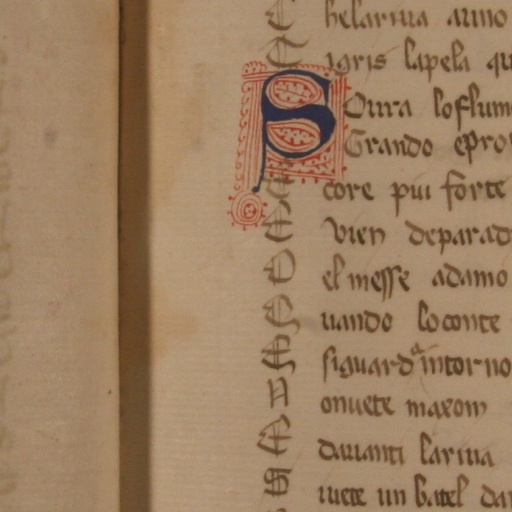 C helariua aimo
T igris lapela qu
S oura loflum
Grando epro
core piu forte
E vien deparad
D el messe adamo
Q uando loconte
E siguarda intorno
N onuete maxom
E dauanti lariua
S uete un batel da